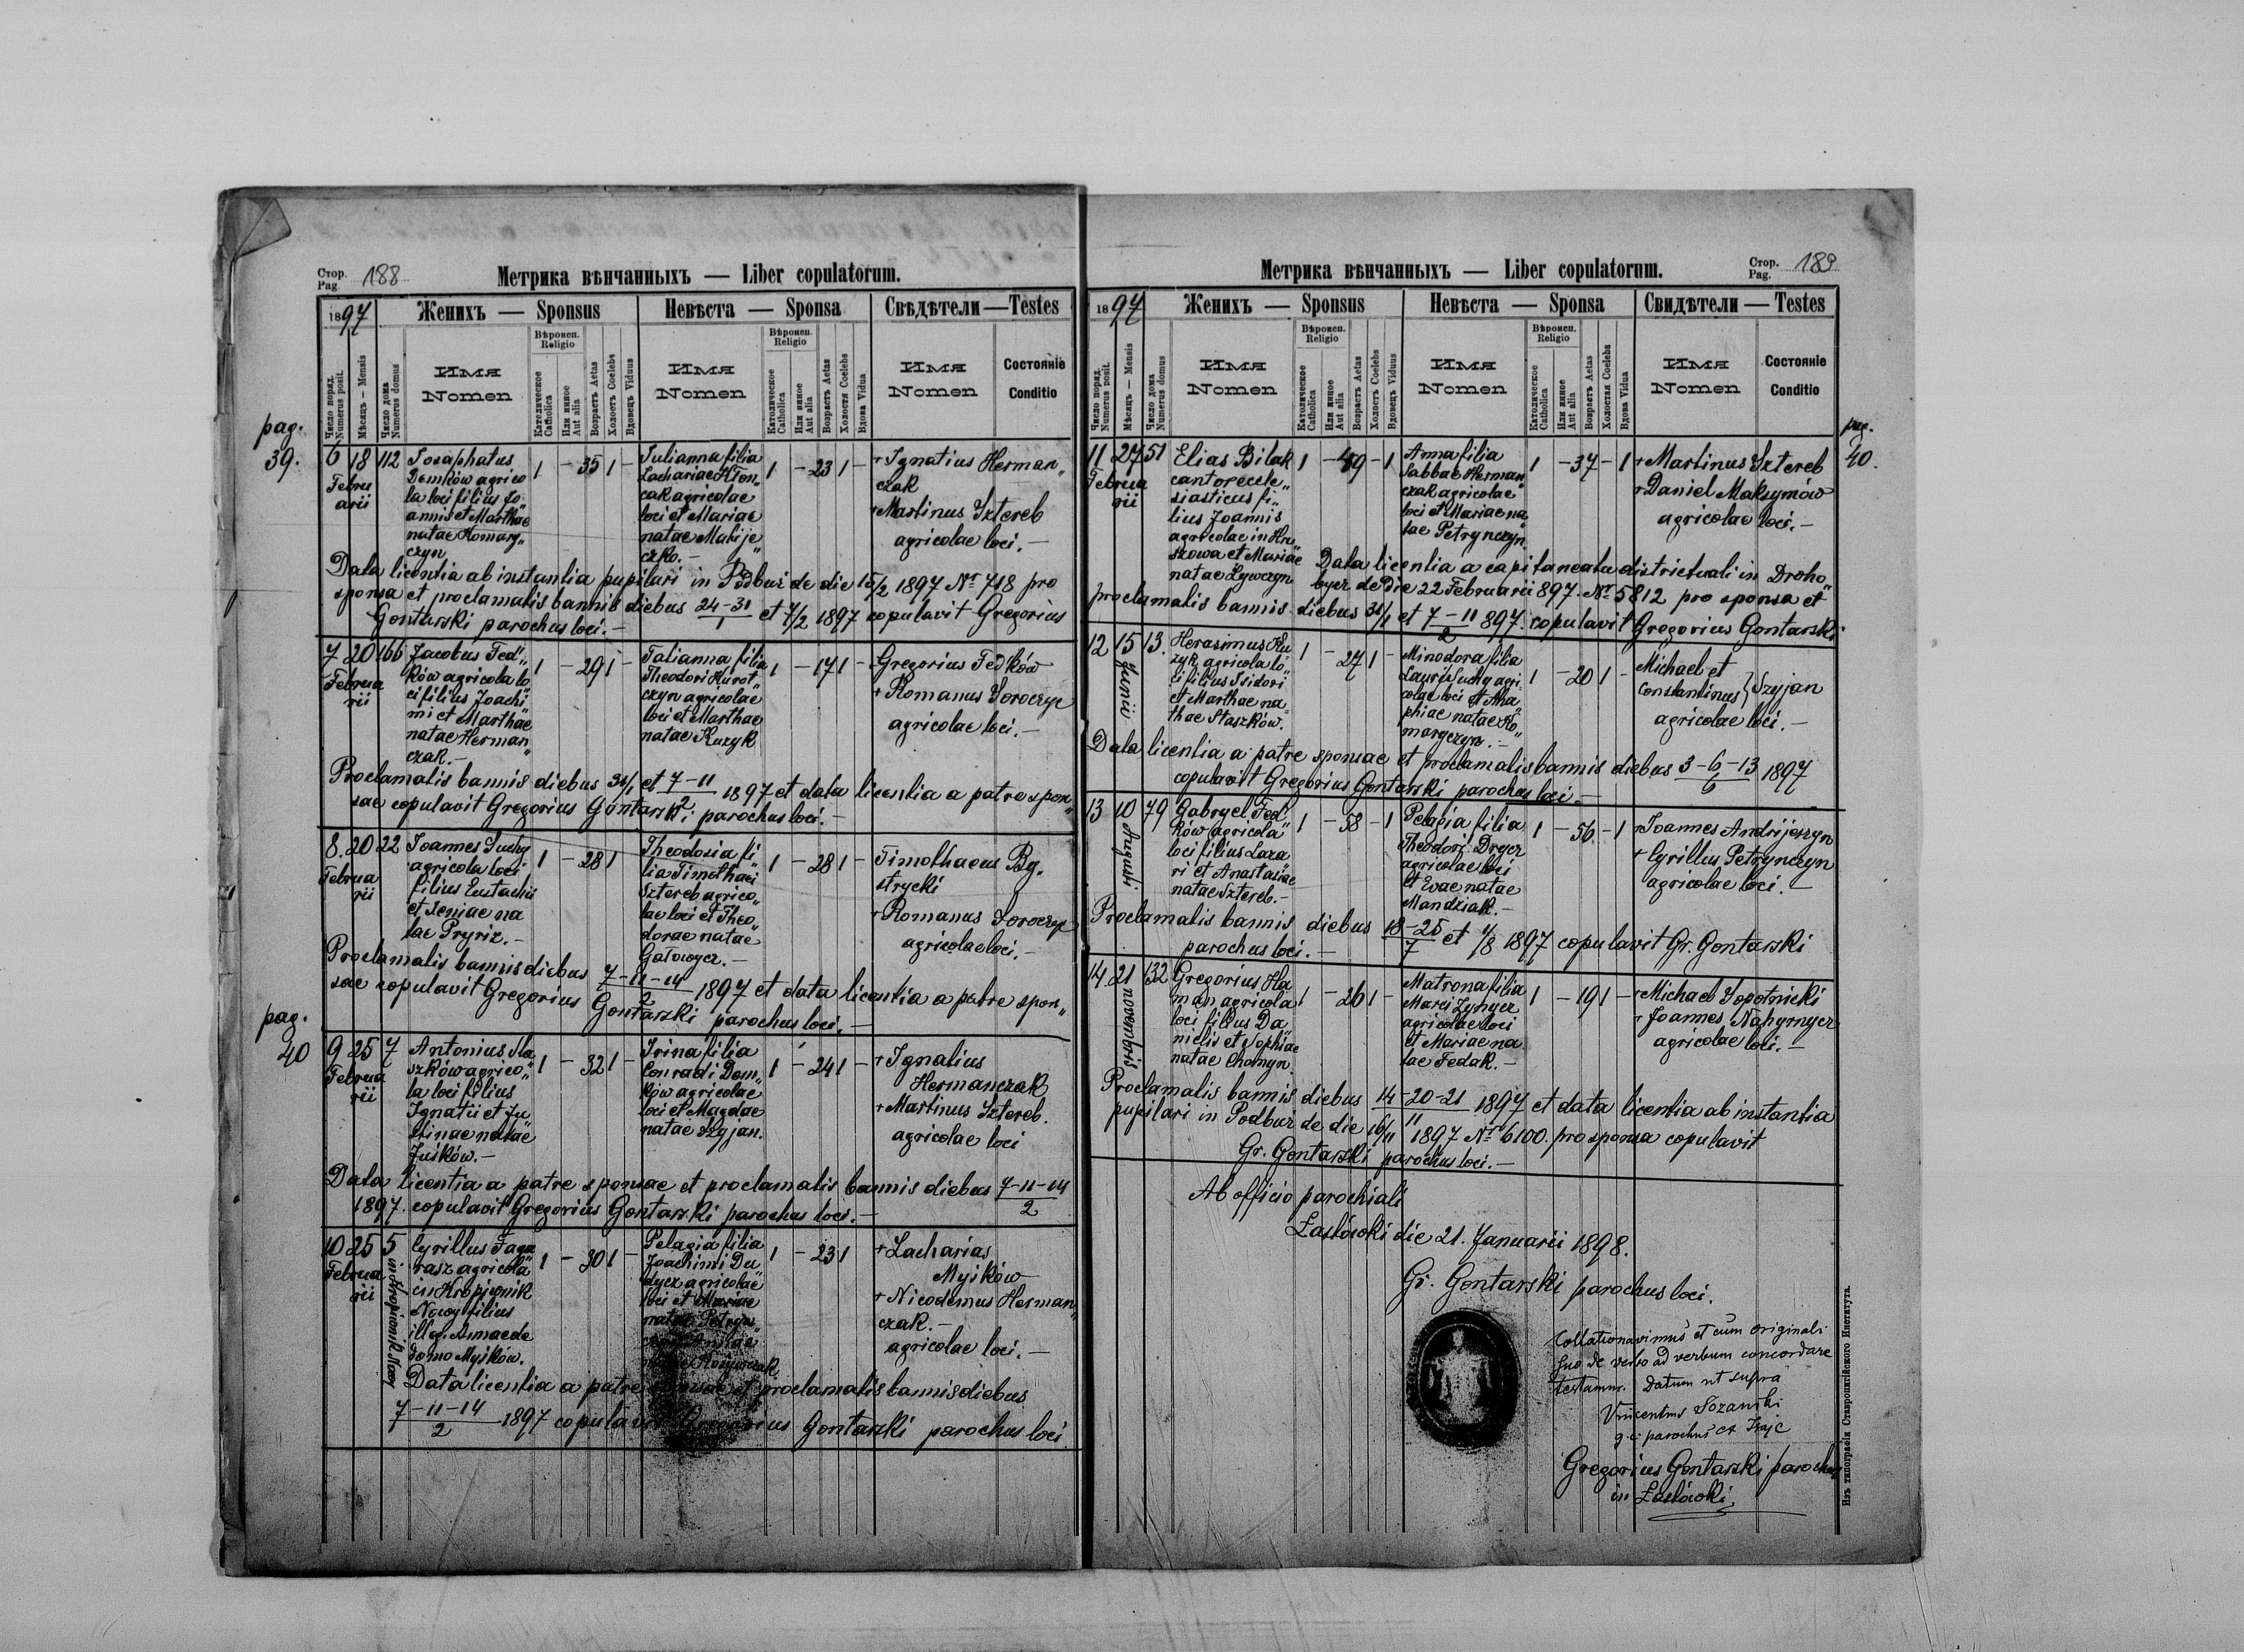 Стор. Pag. 188
Метрика вѣнчанныхъ — Liber copulatorum.
1897
Женихъ — Sponsus
Невѣста — Sponsa
Свѣдѣтели — Testes
Число поряд. Numerus posit.
Мѣсяцъ — Mensis
Число дома Numerus domus
Имя Nomen
Вѣроисп. Religio
Католическое Catholica
Или иное Aut alia
Возрастъ Aetas
Холостъ Coelebs
Вдовецъ Viduus
Имя Nomen
Вѣроисп. Religio
Католическое Catholica
Или иное Aut alia
Возрастъ Aetas
Холостя Coelebs
Вдова Vidua
Имя Nomen
Состоянiе Conditio
pag. 39.
6 18 Februarii 112
Josaphatus
Demków agrico„
la loci filius Jo„
annis et Marthae
natae Komarg„
czyn
1 – 35 1 –
Julianna filia
Zachariae
cak agricolae
loci et Mariae
natae Matije„
czko.–
1 – 23 1 –
+ Ignatius Herman„
czak
+ Martinus Sztereb
agricolae loci.–
Data licentia ab instantia pupilari in Podbuż de die 15/2 1897 Nr 718 pro
sponsa et proclamatis bannis diebus 24–31/1 et 7/2 1897 copulavit Gregorius
Gontarski parochus loci.–
7 20 Februarii 166
Jacobus Fed„
ków agricola lo„
ci filius Joachi„
mi et Marthae
natae Herman„
czak.–
1 – 29 1 –
Tatianna filia
Theodori Kurot„
czyn agricolae
loci et Marthae
natae Kuzyk
1 – 17 1 –
Gregorius Fedków
+ Romanus Soroczyc
agricolae loci.–
Proclamatis bannis diebus 31/1 et 7–11/2 1897 et data licentia a patre spon„
sae copulavit Gregorius Gontarski parochus loci.–
8. 20 Februarii 22
Joannes Suchy
agricola loci
filius Eustachii
et Xeniae na
tae Pryriz.–
1 – 28 1
Theodosia fi„
lia Timothaei
Sztereb agrico„
lae loci et Theo„
dorae natae
Gatowycz.–
1 – 28 1 –
Timothaeus By„
strycki
+ Romanus Soroczyc
agricolae loci.–
Proclamatis bannis diebus 7–11–14/2 1897 et data licentia a patre spon„
sae copulavit Gregorius Gontarski parochus loci.–
pag. 40
9 25 Februarii 7
Antonius Sta
szków agrico„
la loci filius
Ignatii et Ju
stinae natae
Juśków.–
1 – 32 1 –
Irina filia
Conradi Dem„
ków agricolae
loci et Magdae
natae Szyjan.
1 – 24 1 –
+ Ignatius
Hermanczak
+ Martinus Sztereb.
agricolae loci
Data licentia a patre sponsae et proclamatis bannis diebus 7–11–14/2
1897. copulavit Gregorius Gontarski parochus loci.–
10 25 Februarii 5 in Kropiwnik Nowy
Cyrillus Faga
rasz agricola
in Kropiwnik
Nowy filius
illg. Annae de
domo Myśków.
1 – 30 1 –
Pelagia filia
Joachimi Du
dycz agricolae
loci et Mariae
1 – 23 1
+ Zacharias
Myśków
+ Nicodemus Herman„
czak.–
agricolae loci.–
Data licentia a patre sponsae et proclamatis bannis diebus
7–11–14/2 1897 copulavit Gregorius Gontarski parochus loci
Стор. Pag. 189
Метрика вѣнчанныхъ — Liber copulatorum.
1897
Женихъ — Sponsus
Невѣста — Sponsa
Свидѣтели — Testes
Число поряд. Numerus posit.
Мѣсяцъ — Mensis
Число дома Numerus domus
Имя Nomen
Вѣроисп. Religio
Католическое Catholica
Или иное Aut alia
Возрастъ Aetas
Холостъ Coelebs
Вдовецъ Viduus
Имя Nomen
Вѣроисп. Religio
Католическое Catholica
Или иное Aut alia
Возрастъ Aetas
Холостая Coelebs
Вдова Vidua
Имя Nomen
Состоянiе Conditio
pag. 40.
11 27 Februarii 51
Elias Bilak
cantor eccle„
siasticus fi„
lius Joannis
agricolae in Hru
szowa et Mariae
natae Zywczyn
1 – 49 – 1
Anna filia
Sabbae Herman„
czak agricolae
loci et Mariae na
tae Petrynczyn.
1 – 37 – 1
+ Martinus Sztereb
+ Daniel Maksymów
agricolae loci.–
Data licentia a capitaneatu districtuali in Droho„
bycz de die 22 Februarii 897. Nr 5812 pro sponsa et
proclamatis bannis diebus 31/1 et 7–11/2 897. copulavit Gregorius Gontarski
12 15 Junii 13.
Herasimus Ku
zyk agricola lo„
ci filius Isidori
et Marthae na„
thae Staszków.
1 – 27 1 –
Minodora filia
Lauri Suchy agri„
colae loci et Aha„
phiae natae Ko„
margczyn.–
1 – 20 1 –
Michael et
Constantinus } Szyjan
agricolae loci.–
Data licentia a patre sponsae et proclamatis bannis diebus 3–6–13/6 1897
copulavit Gregorius Gontarski parochus loci.–
13 10 Augusti 79
Gabryel Fed„
ków agricola
loci filius Laza
ri et Anastasiae
natae Sztereb.–
1 – 58 – 1
Pelagia filia
Theodori Drycz
agricolae loci
et Evae natae
Mandziak.–
1 – 56 – 1
+ Joannes Andrijeszyn
+ Cyrillus Petrynczyn
agricolae loci.–
Proclamatis bannis diebus 18–25/7 et 1/8 1897 copulavit Gr. Gontarski
parochus loci.–
14 21 novembris 132
Gregorius Ha
man agricola
loci filius Da
nielis et Sophiae
natae Chomyn.
1 – 26 1 –
Matrona filia
Marci Zynycz
agricolae loci
et Mariae na
tae Fedak.–
1 – 19 1 –
+ Michael Sopotnicki
+ Joannes Nahyrnycz
agricolae loci.–
Proclamatis bannis diebus 14–20–21/11 1897 et data licentia ab instantia
pupilari in Podbuż de die 16/11 1897 Nr 6100. pro sponsa copulavit
Gr. Gontarski parochus loci.–
Ab officio parochiali
Załókci die 21. Januarii 1898.
Gr. Gontarski parochus loci.
Collationavimus et cum originali
suo de verbo ad verbum concordare
testamur. Datum ut supra
Vincentius
Gregorius Gontarski parochus
in Załókci.
Изъ типографiи Ставропигiйского Института.